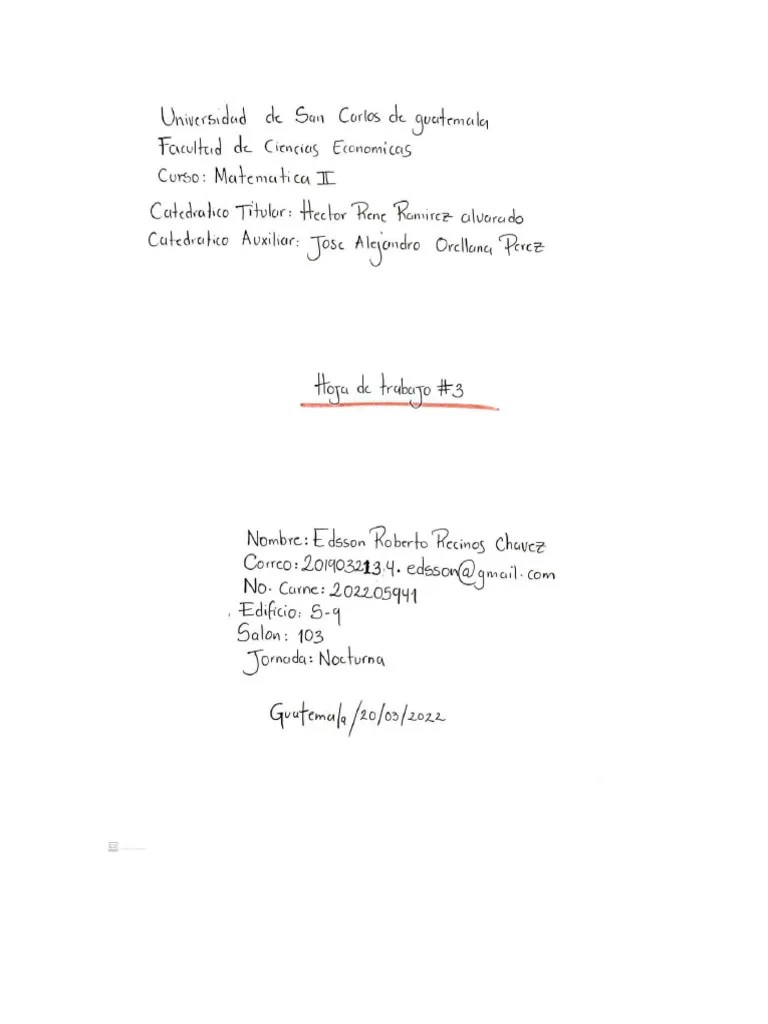 Universidad de San Carlos de guatemala
Facultad de Ciencias Economicas
Curso: Matematica II
Catedratico Titular: Hector Rene Ramirez alvarado
Catedratico Auxiliar: Jose Alejandro Orellana Perez
Hoja de trabajo #3
Nombre: Edsson Roberto Recinos Chavez
Correo: 2019032134.edsson@gmail.com
No. Carne: 202205941
Edificio: S-9
Salon: 103
Jornada: Nocturna
Guatemala/20/03/2022